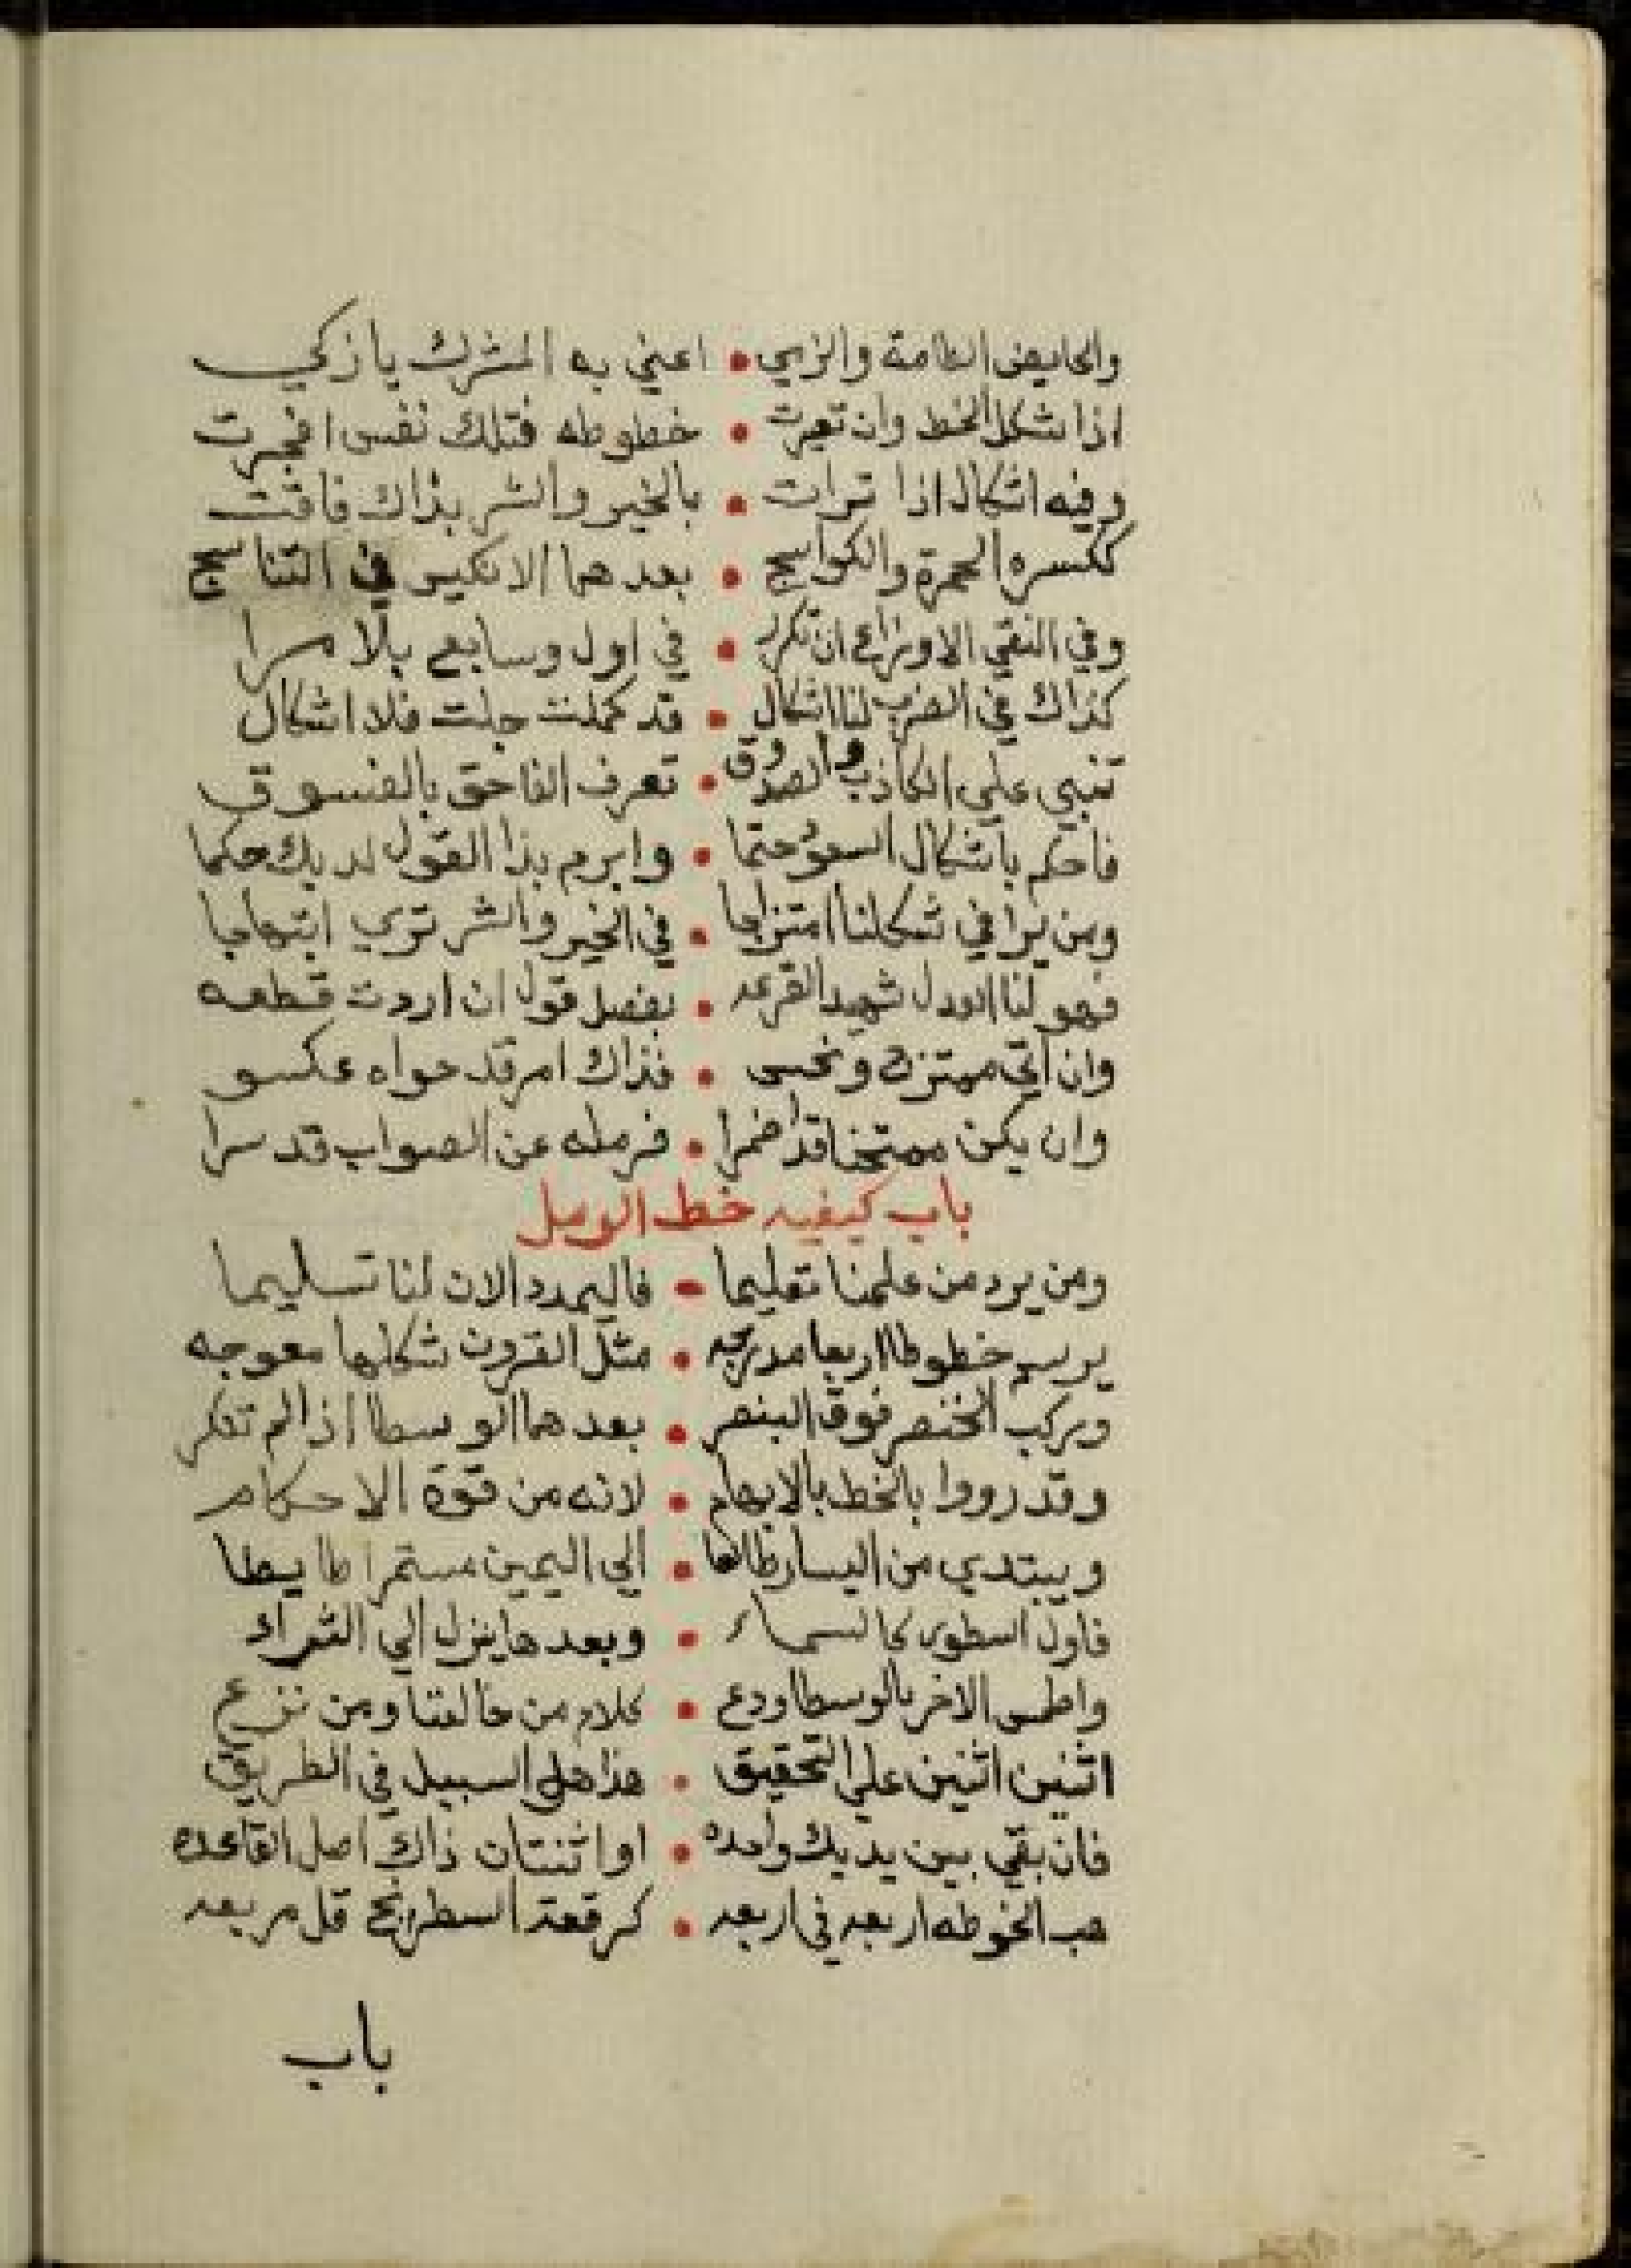 والحايض الطامة والزمي • اعني به المشرك يا زكي
اذا شكل الخط وان تعيرت • خطوطه فتلك نفس افجرت
وفيه اشكال اذا ترات • بالخير والشر بذاك فاقت
ككسره الحمرة والكواسج • بعدهما الانكيس في التناسج
وفي النقي الاوتراع ان تكرر • في اول وسابع بلا مرا
كذاك في الضرب لنا اشكال • قد كملت جلت فلا اشكال
تنبي علي الكاذب والصدوق • تعرف الفاحق بالفسوق
فاحكم باشكال السعود حتما • وابرم بذا القول لديك حكما
ومن يرا في شكلنا امتزاجا • في الخير والشر تري ابتهاجا
فهو لنا العدل شهيد القرعه • بفصل قول ان اردت قطعه
وان اتي ممتزه ونحس • فذاك امر قد حواه عكسو
وان يكن ممتحنا قد اضمرا • فرمله عن الصواب قد سرا
باب كيفيه خط الرمل
ومن يرد من علمنا تعليما • فاليمدد الان لنا تسليما
يرسم خطوطا اربعا مدرجه • مثل القرون شكلها معوجه
ويركب الخنصر فوق البنصر • بعدهما الوسطا اذا لم تفكر
وقد رووا بالخط بالابهام • لانه من قوة الاحكام
ويبتدي من اليسار • الي اليمين مستمرا
فاول السطور كالسماء • وبعدها ينزل الي الثراء
واطمس الاخر بالوسطا ودع • كلام من خالفنا ومن
اثنين اثنين علي التحقيق • هذا هو السبيل في الطريق
فان بقي بين يديك واحده • او اثنتان ذاك اصل القاعده
هب الخوطه اربعه في اربعه • كرقعة السطرنج قل مربعه
باب